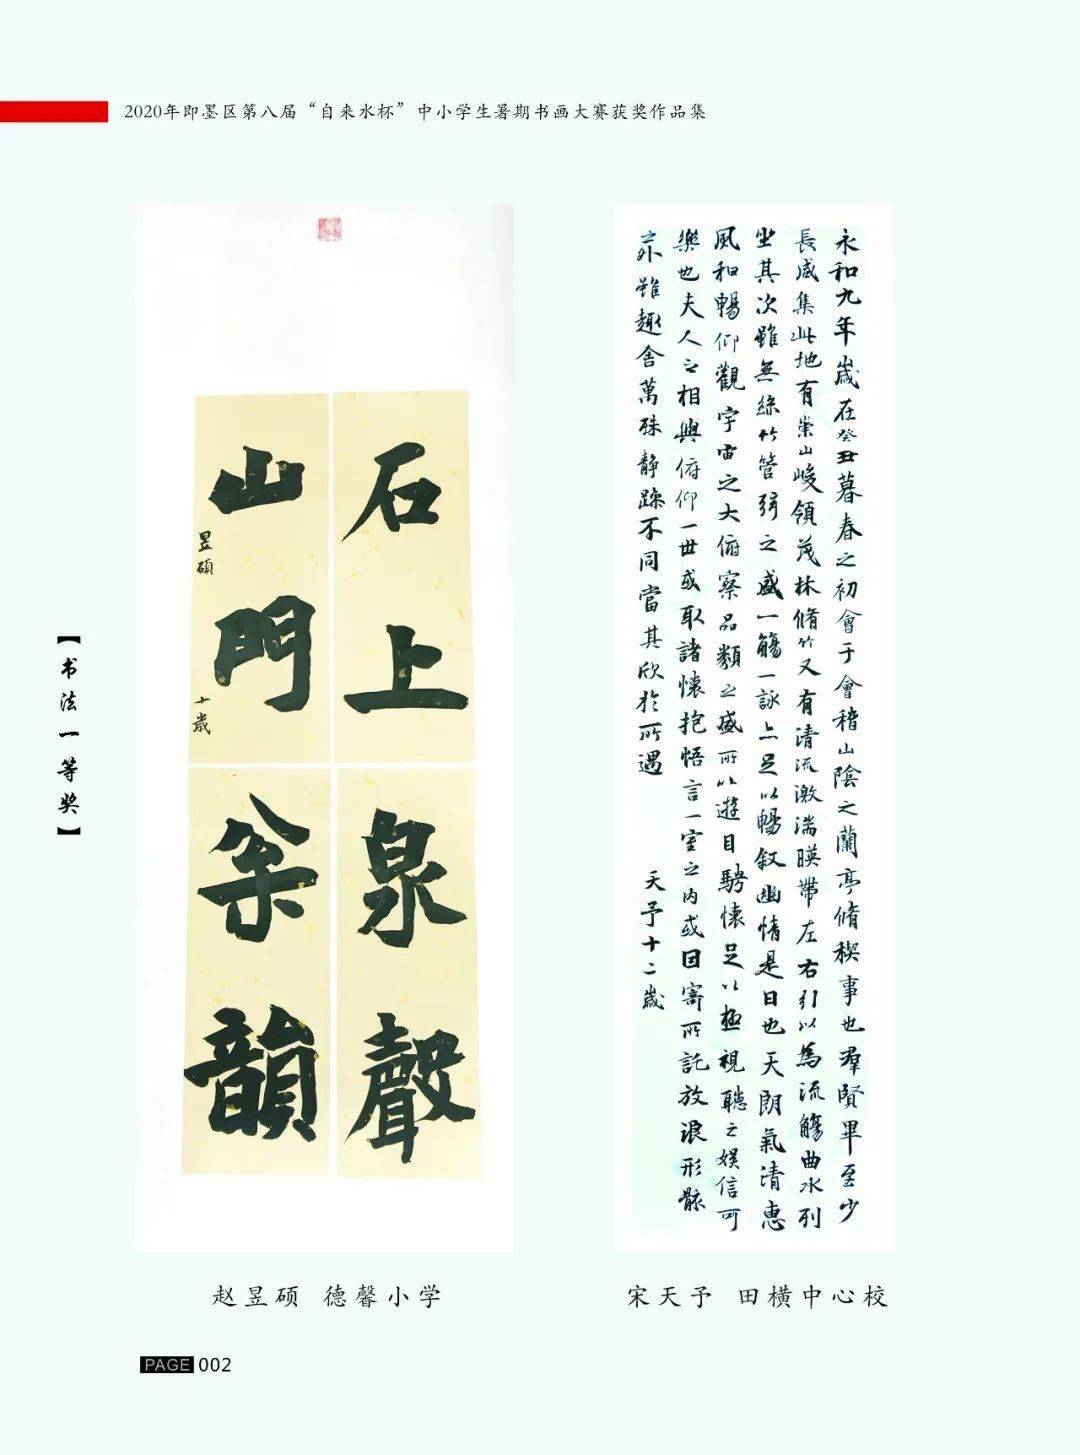 2020年即墨区第八届“自来水杯”中小学生暑期书画大赛获奖作品集
【书法一等奖】
石上泉聲
山門枀韻
昱碩
十歲
永和九年歲在癸丑暮春之初會于會稽山陰之蘭亭脩稧事也羣賢畢至少
長咸集此地有崇山峻領茂林脩竹又有清流激湍暎帶左右引以為流觴曲水列
坐其次雖無絲竹管弦之盛一觴一詠亦足以暢叙幽情是日也天朗氣清惠
風和暢仰觀宇宙之大俯察品類之盛所以遊目騁懷足以極視聽之娛信可
樂也夫人之相與俯仰一世或取諸懷抱悟言一室之內或因寄所託放浪形骸
之外雖趣舍萬殊靜躁不同當其欣於所遇
天予十二歲
赵昱硕 德馨小学
宋天予 田横中心校
PAGE 002